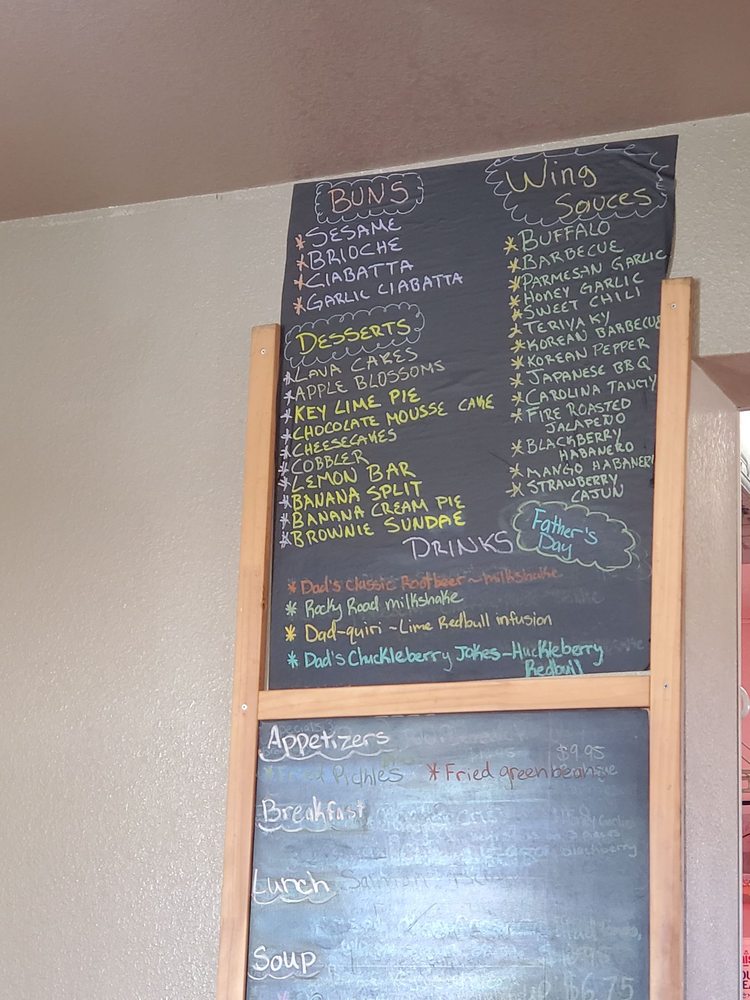 BUNS
* SESAME
* BRIOCHE
* CIABATTA
* GARLIC CIABATTA
DESSERTS
* LAVA CAKES
* APPLE BLOSSOMS
* KEY LIME PIE
* CHOCOLATE MOUSSE CAKE
* CHEESECAKES
* COBBLER
* LEMON BAR
* BANANA SPLIT
* BANANA CREAM PIE
* BROWNIE SUNDAE
Wing
Sauces
* BUFFALO
* BARBECUE
* PARMESAN GARLIC
* HONEY GARLIC
* SWEET CHILI
* TERIYAKY
* KOREAN BARBECUE
* KOREAN PEPPER
* JAPANESE BBQ
* CAROLINA TANGY
* FIRE ROASTED
JALAPENO
* BLACKBERRY
HABANERO
* MANGO HABANERO
* STRAWBERRY
CAJUN
DRINKS
Father's
Day
* Dad's Classic Rootbeer ~ milkshake
* Rocky Road milkshake
* Dad-quiri ~ Lime Redbull infusion
* Dad's Chuckleberry Jokes ~ Huckleberry
Redbull
Appetizers
$9.95
Pickles * Fried greenbeans
Breakfast
Lunch
Soup
$6.75